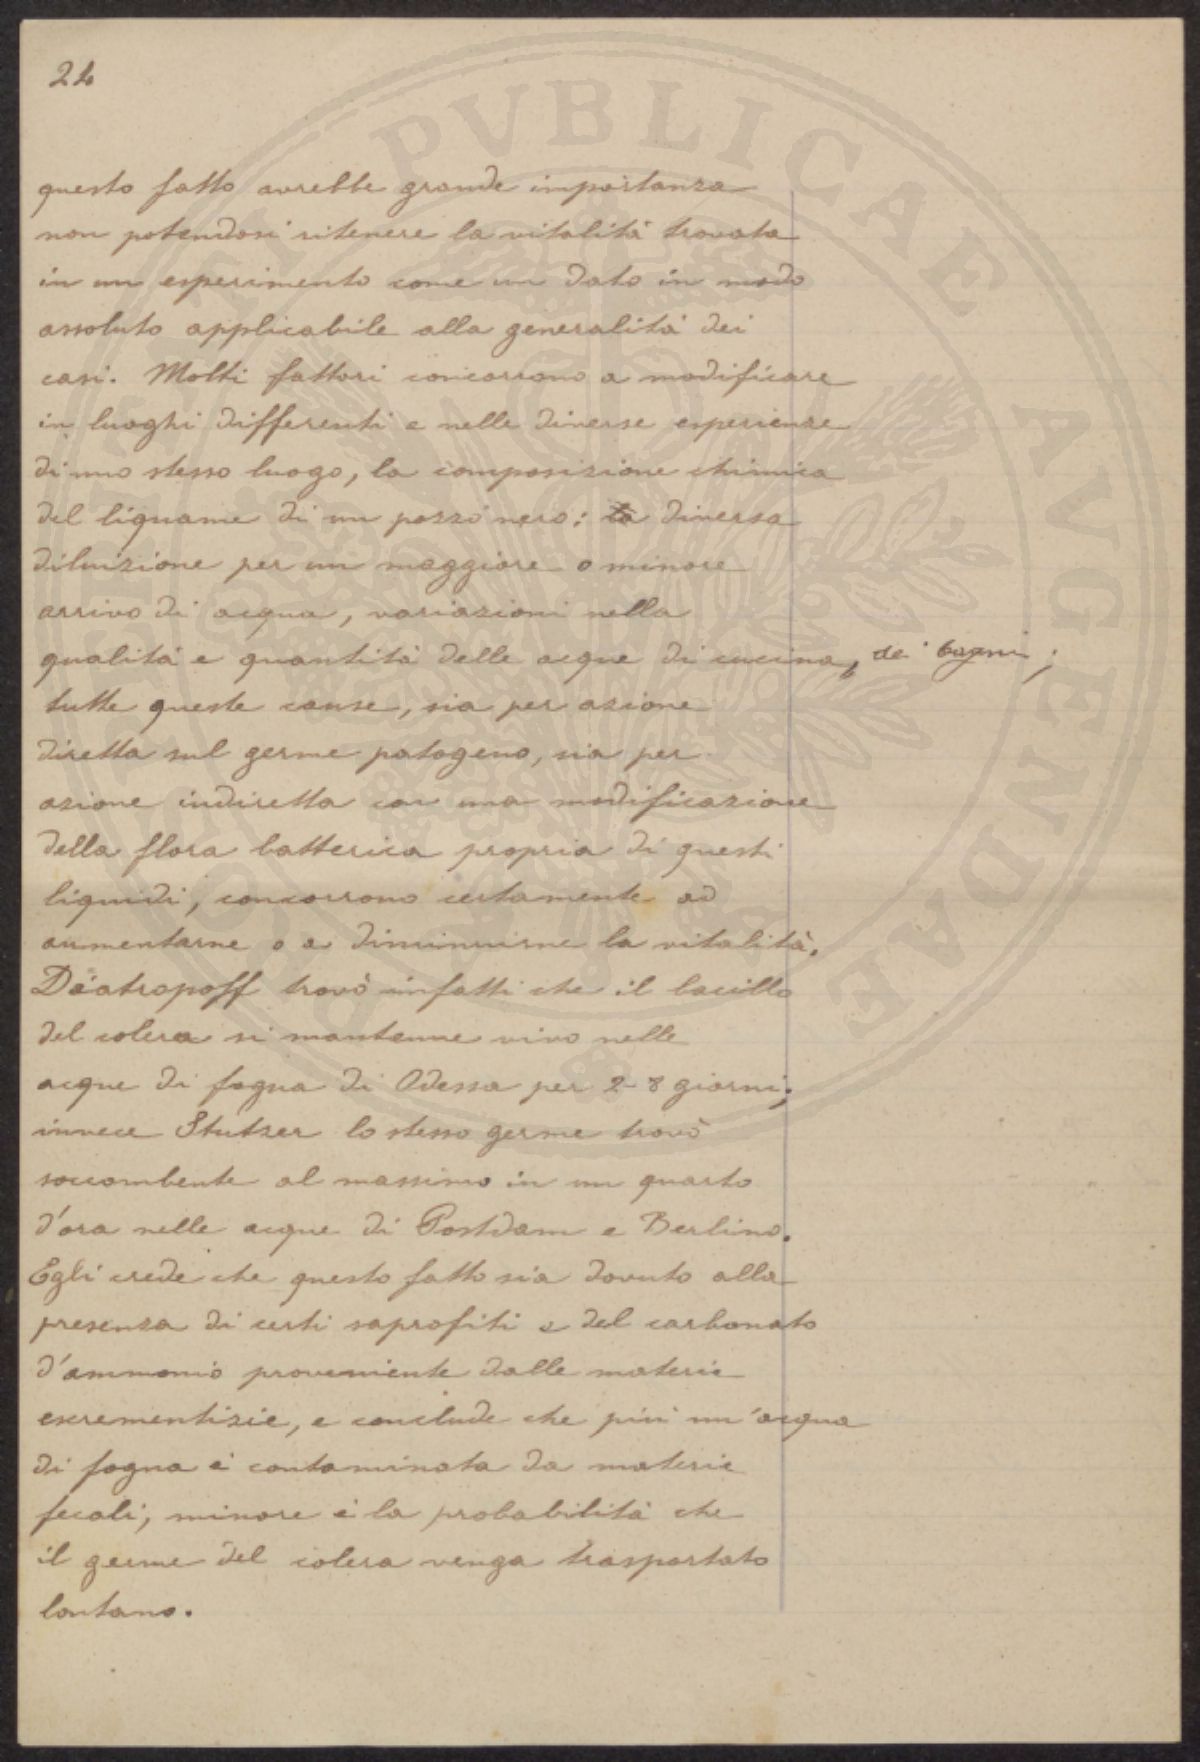 24
questo fatto avrebbe grande importanza
non potendosi ritenere la vitalità trovata
in un esperimento come un dato in modo
assoluto applicabile alla generalità dei
casi. Molti fattori concorrono a modificare
in luoghi differenti e nelle diverse esperienze
di uno stesso luogo, la composizione chimica
del liquame di un pozzo nero: la diversa
diluizione per un maggiore o minore
arrivo di acqua, variazioni nella
qualità e quantità delle acque di cucina, de' bagni;
tutte queste cause, sia per azione
diretta sul germe patogeno, sia per
azione indiretta con una modificazione
della flora batterica propria di questi
liquidi, concorrono certamente ad
aumentarne o a diminuirne la vitalità.
Diatropoff trovò infatti che il bacillo
del colera si mantenne vivo nelle
acque di fogna di Odessa per 2-8 giorni;
invece Stutzer lo stesso germe trovò
soccombente al massimo in un quarto
d'ora nelle acque di Postdam e Berlino.
Egli crede che questo fatto sia dovuto alla
presenza di certi saprofiti e del carbonato
d'ammonio proveniente dalle materie
escrementizie, e conclude che più un'acqua
di fogna è contaminata da materie
fecali, minore è la probabilità che
il germe del colera venga trasportato
lontano.
PVBLICAE AVGENDAE